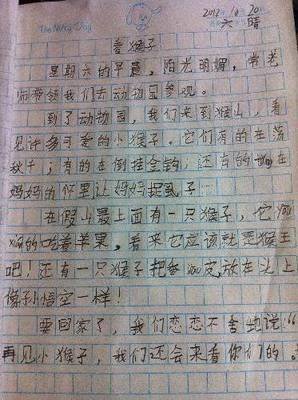 The Nosy Dog
2012, 10, 20
六 晴
看猴子
星期六的早晨，阳光明媚，常老
师带领我们去动物园参观。
到了动物园，我们来到猴山，看
见许多可爱的小猴子。它们有的在荡
秋千；有的在倒挂金钩；还有的在
妈妈的怀里让妈妈捉虱子…
在假山最上面有一只猴子，它
的吃着苹果，看来它应该就是猴王
吧！还有一只猴子把香 皮放在头上
像孙悟空一样！
要回家了，我们恋恋不舍地说：“
再见小猴子，我们还会来看你们的。